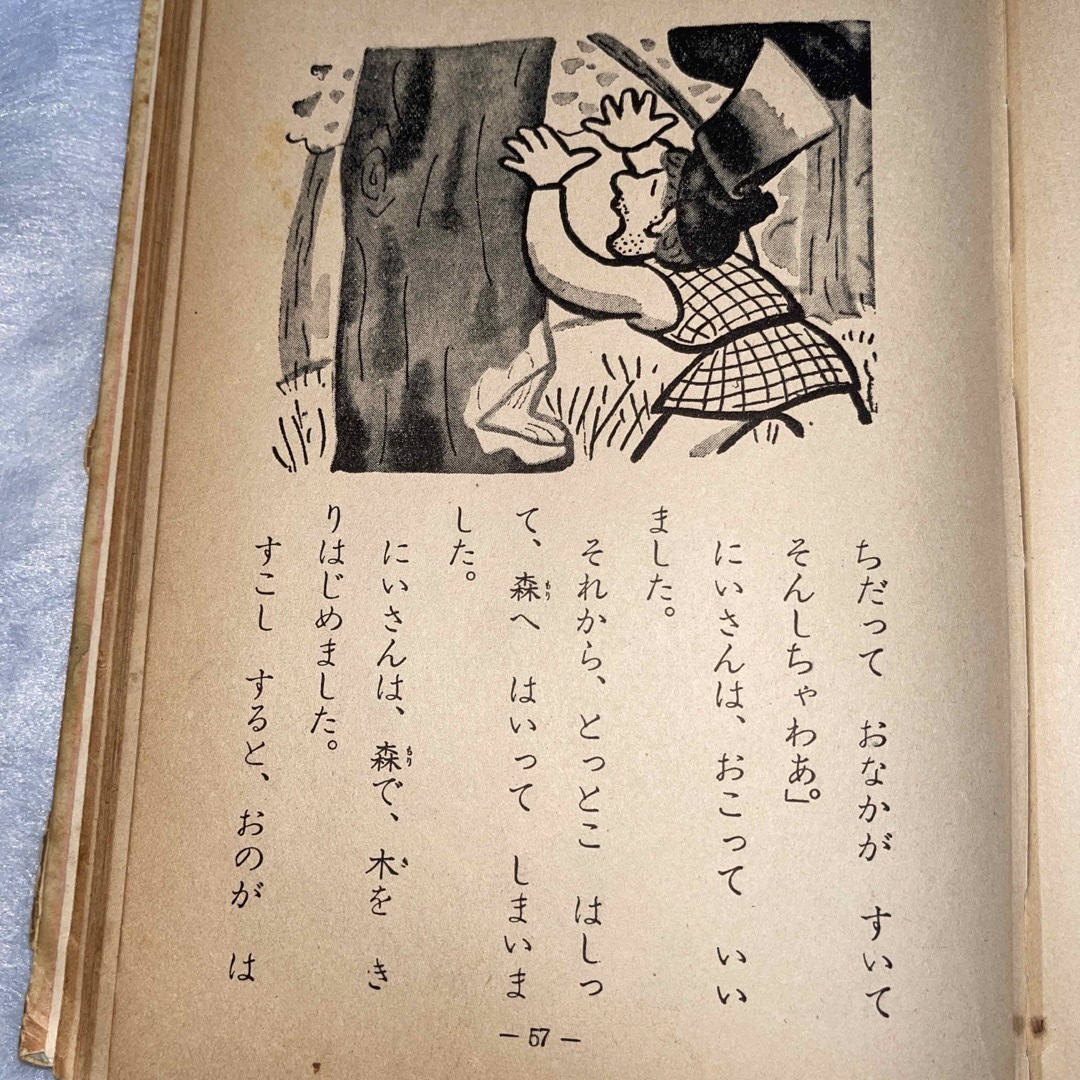 ちだって　おなかが　すいて
そんしちゃわあ。」
にいさんは、おこって　いい
ました。
それから、とっとこ　はしっ
て、森へ　はいって　しまいま
した。
にいさんは、森で、木を　き
りはじめました。
すこし　すると、おのが　は
— 57 —